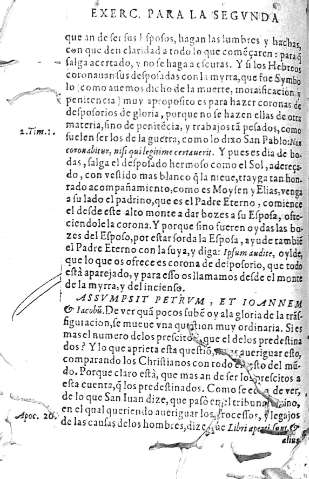 EXERC. PARA LA SEGVNDA
que an de ser sus Esposos, hagan las lumbres y hachas,
con que den claridad a todo lo que comēçaren: paraq̃
salga acertado, y no se haga a escuras. Y si los Hebreos
coronauan sus desposadas con la myrra, que fue Symbo
lo (como auemos dicho de la muerte, mortificacion y
penitencia) muy aproposito es para hazer coronas de
desposorios de gloria, porque no se hazen ellas de otra
materia, sino de penitēcia, y trabajos tā pesados, como
suelen ser los de la guerra, como lo dixo San Pablo: Non
2.Tim.2.
coronabitur, nisi qui legitime certauerit. Y pues es dia de bo-
das, salga el desposado hermoso como el Sol, adereça-
do, con vestido mas blanco q̃ la nieue, trayga tan hon-
rado acompañamiento, como es Moysen y Elias, venga
a su lado el padrino, que es el Padre Eterno, comience
el desde este alto monte a dar bozes a su Esposa, ofre-
ciendole la corona. Y porque sino fueren oydas las bo-
zes del Esposo, por estar sorda la Esposa, ayude tambiē
el Padre Eterno con la suya, y diga: Ipsum audite, oylde,
que lo que os ofrece es corona de desposorio, que todo
està aparejado, y para esso os llamamos desde el monte
de la myrra, y del incienso.
ASSVMPSIT PETRVM, ET IOANNEM
& Iacobū. De ver quā pocos subē oy a la gloria de la trās-
figuracion, se mueue vna question muy ordinaria. Si es
mas el numero de los prescitos, que el de los predestina
dos? Y lo que aprieta esta questiō, es aueriguar esto,
comparando los Christianos con todo el resto del mū-
do. Porque claro està, que mas an de ser los prescitos a
esta cuenta, q̃ los predestinados. Como se echa de ver,
de lo que San Iuan dize, que pasò en el tribunal diuino,
Apoc. 20.
en el qual queriendo aueriguar los processos, y legajos
de las causas de los hombres, dize que Libri aperti sunt &
alius